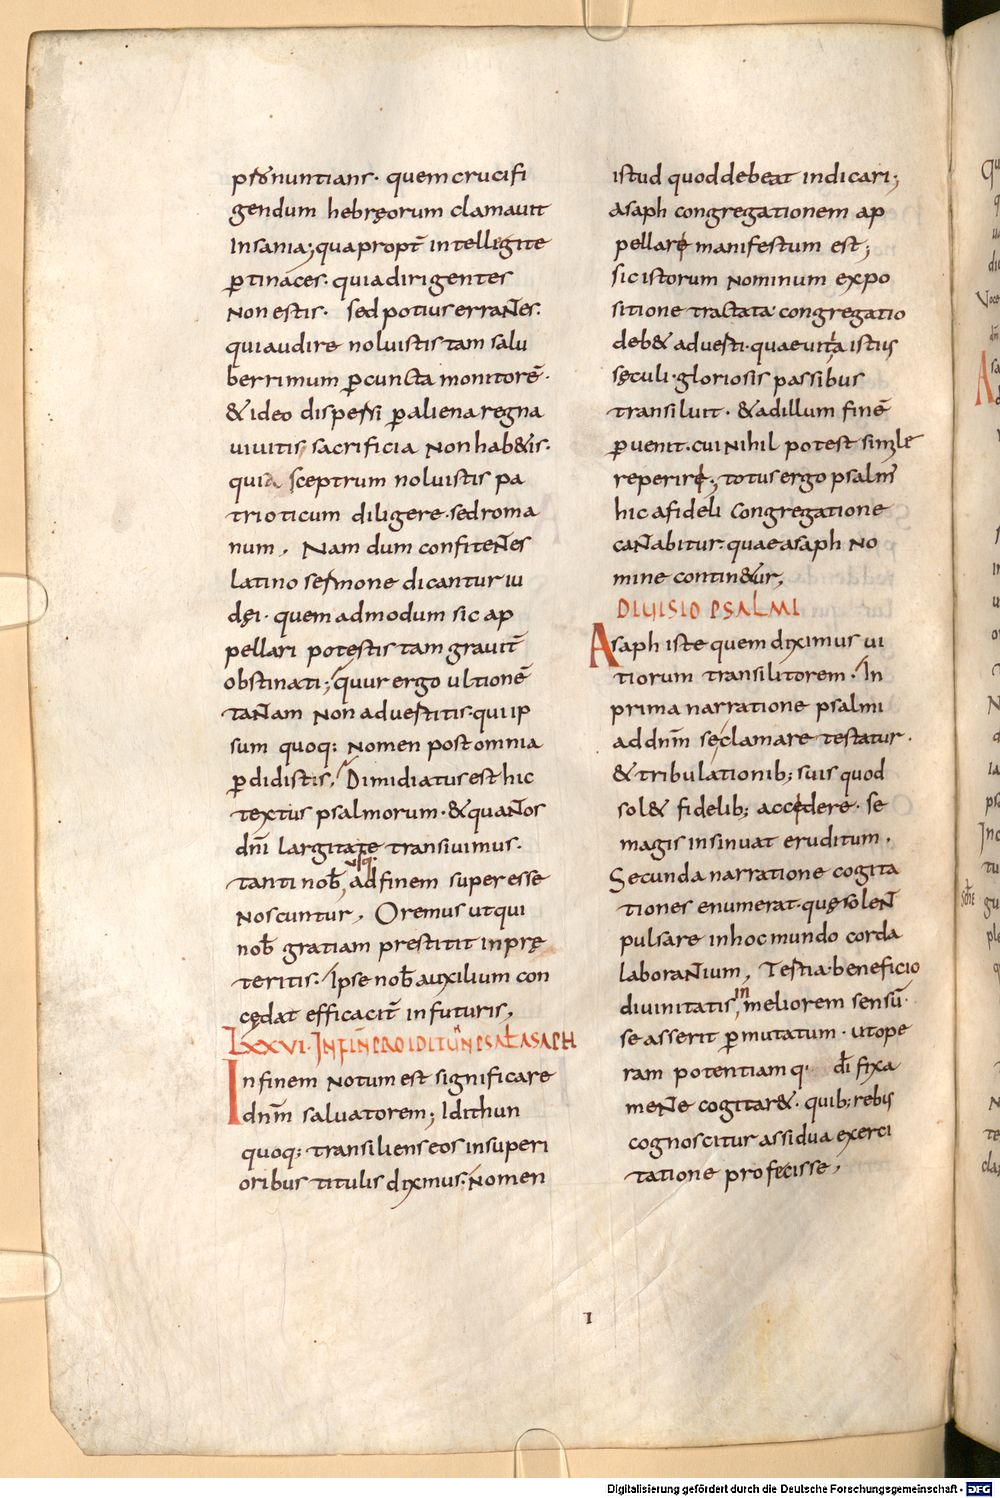 pronuntians. quem crucifi
gendum hebręorum clamauit
Insania; quapropt̄ intellegite
ꝑtinaces. quia dirigentes
Non estis. sed potius erraNtes.
qui audire noluistis tam salu
berrimum ꝑcuncta monitorē.
& ideo dispersi ꝑ aliena regna
uiuitis, sacrificia Non hab&is.
quia sceptrum noluistis pa
trioticum diligere. sed roma
num. Nam dum confiteNtes
latino sermone dicantur iu
dęi. quem admodum sic ap
pellari potestis tam grauit̄
obstinati; quur ergo ultionē
taNtam Non aduertitis. qui ip
sum quoq: Nomen post omnia
ꝑdidistis, Dimidiatus est hic
textus psalmorum. & quaNtos
dn̄i largitate transiuimus.
usq:
tanti nob̄, ad finem superesse
Noscuntur, Oremus ut qui
nob̄ gratiam prestitit in prę
teritis. Ipse nob̄ auxilium con
cędat efficacit̄ in futuris,
LXXVI. IN FINĒ PRO IDITUN PSAL ASAPH
In finem Notum est significare
dn̄m saluatorem; Idithun
quoq: transiliens eos in superi
oribus titulis diximus. Nomen
istud quod debeat indicari;
asaph congregationem ap
pellare manifestum est;
sic istorum Nominum expo
sitione tractata congregatio
deb& aduerti. quae uita istius
sęculi. gloriosis passibus
transiluit. & ad illum finē
ꝑuenit. cui Nihil potest simile
reperiri; totus ergo psalm̄
hic a fideli Congregatione
caNtabitur. quae asaph No
mine contin&ur,
DIUISIO PSALMI
Asaph iste quem diximus ui
tiorum transilitorem. In
prima narratione psalmi
ad dn̄m se clamare testatur.
& tribulationib; suis quod
sol& fidelib; accedere. se
magis insinuat eruditum.
Secunda narratione cogita
tiones enumerat. quę soleNt
pulsare in hoc mundo corda
laboraNtium, Testia. beneficio
in
diuinitatis, meliorem sensū.
se asserit ꝑmutatum. ut ope
ram potentiamq. dī fixa
meNte cogitar&. quib: rebus
cognoscitur assidua exerci
tatione profecisse,
1
Digitalisierung gefördert durch die Deutsche Forschungsgemeinschaft - DFG